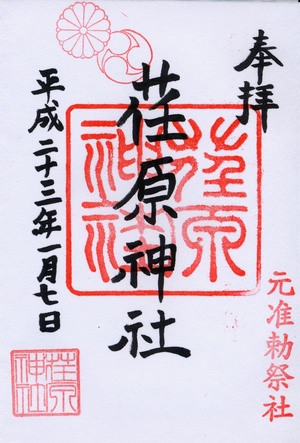 奉拝
元准勅祭社
荏原神社
荏原
神社
平成二十三年一月七日
荏原
神社